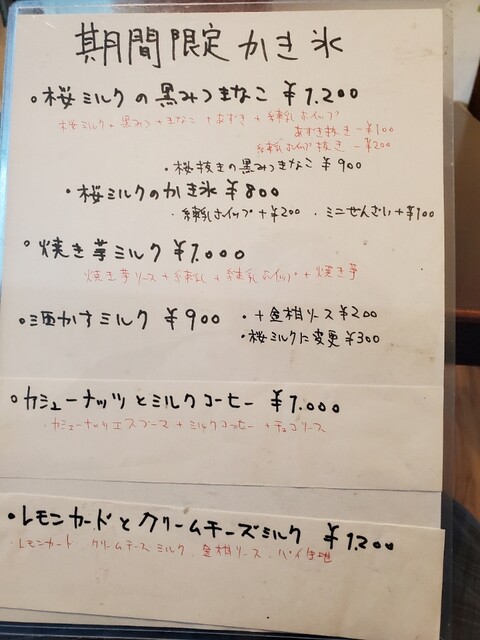 期間限定かき氷
・桜ミルクの黒みつきなこ ¥1.200
桜ミルク+黒みつ+きなこ+あずき+練乳ホイップ
あずき抜き-¥100
練乳ホイップ抜き-¥200
・桜抜きの黒みつきなこ ¥900
・桜ミルクのかき氷 ¥800
・練乳ホイップ+¥200 ・ミニぜんざい+¥100
・焼き芋ミルク ¥1.000
焼き芋ソース+練乳+練乳ホイップ+焼き芋
・酒かすミルク ¥900 ・+金柑ソース¥200
・桜ミルクに変更 ¥300
・カシューナッツとミルクコーヒー ¥1.000
・カシューナッツエスプーマ+ミルクコーヒー+チョコソース
・レモンカードとクリームチーズミルク ¥1.200
・レモンカード.クリームチーズミルク.金柑ソース.パイ生地